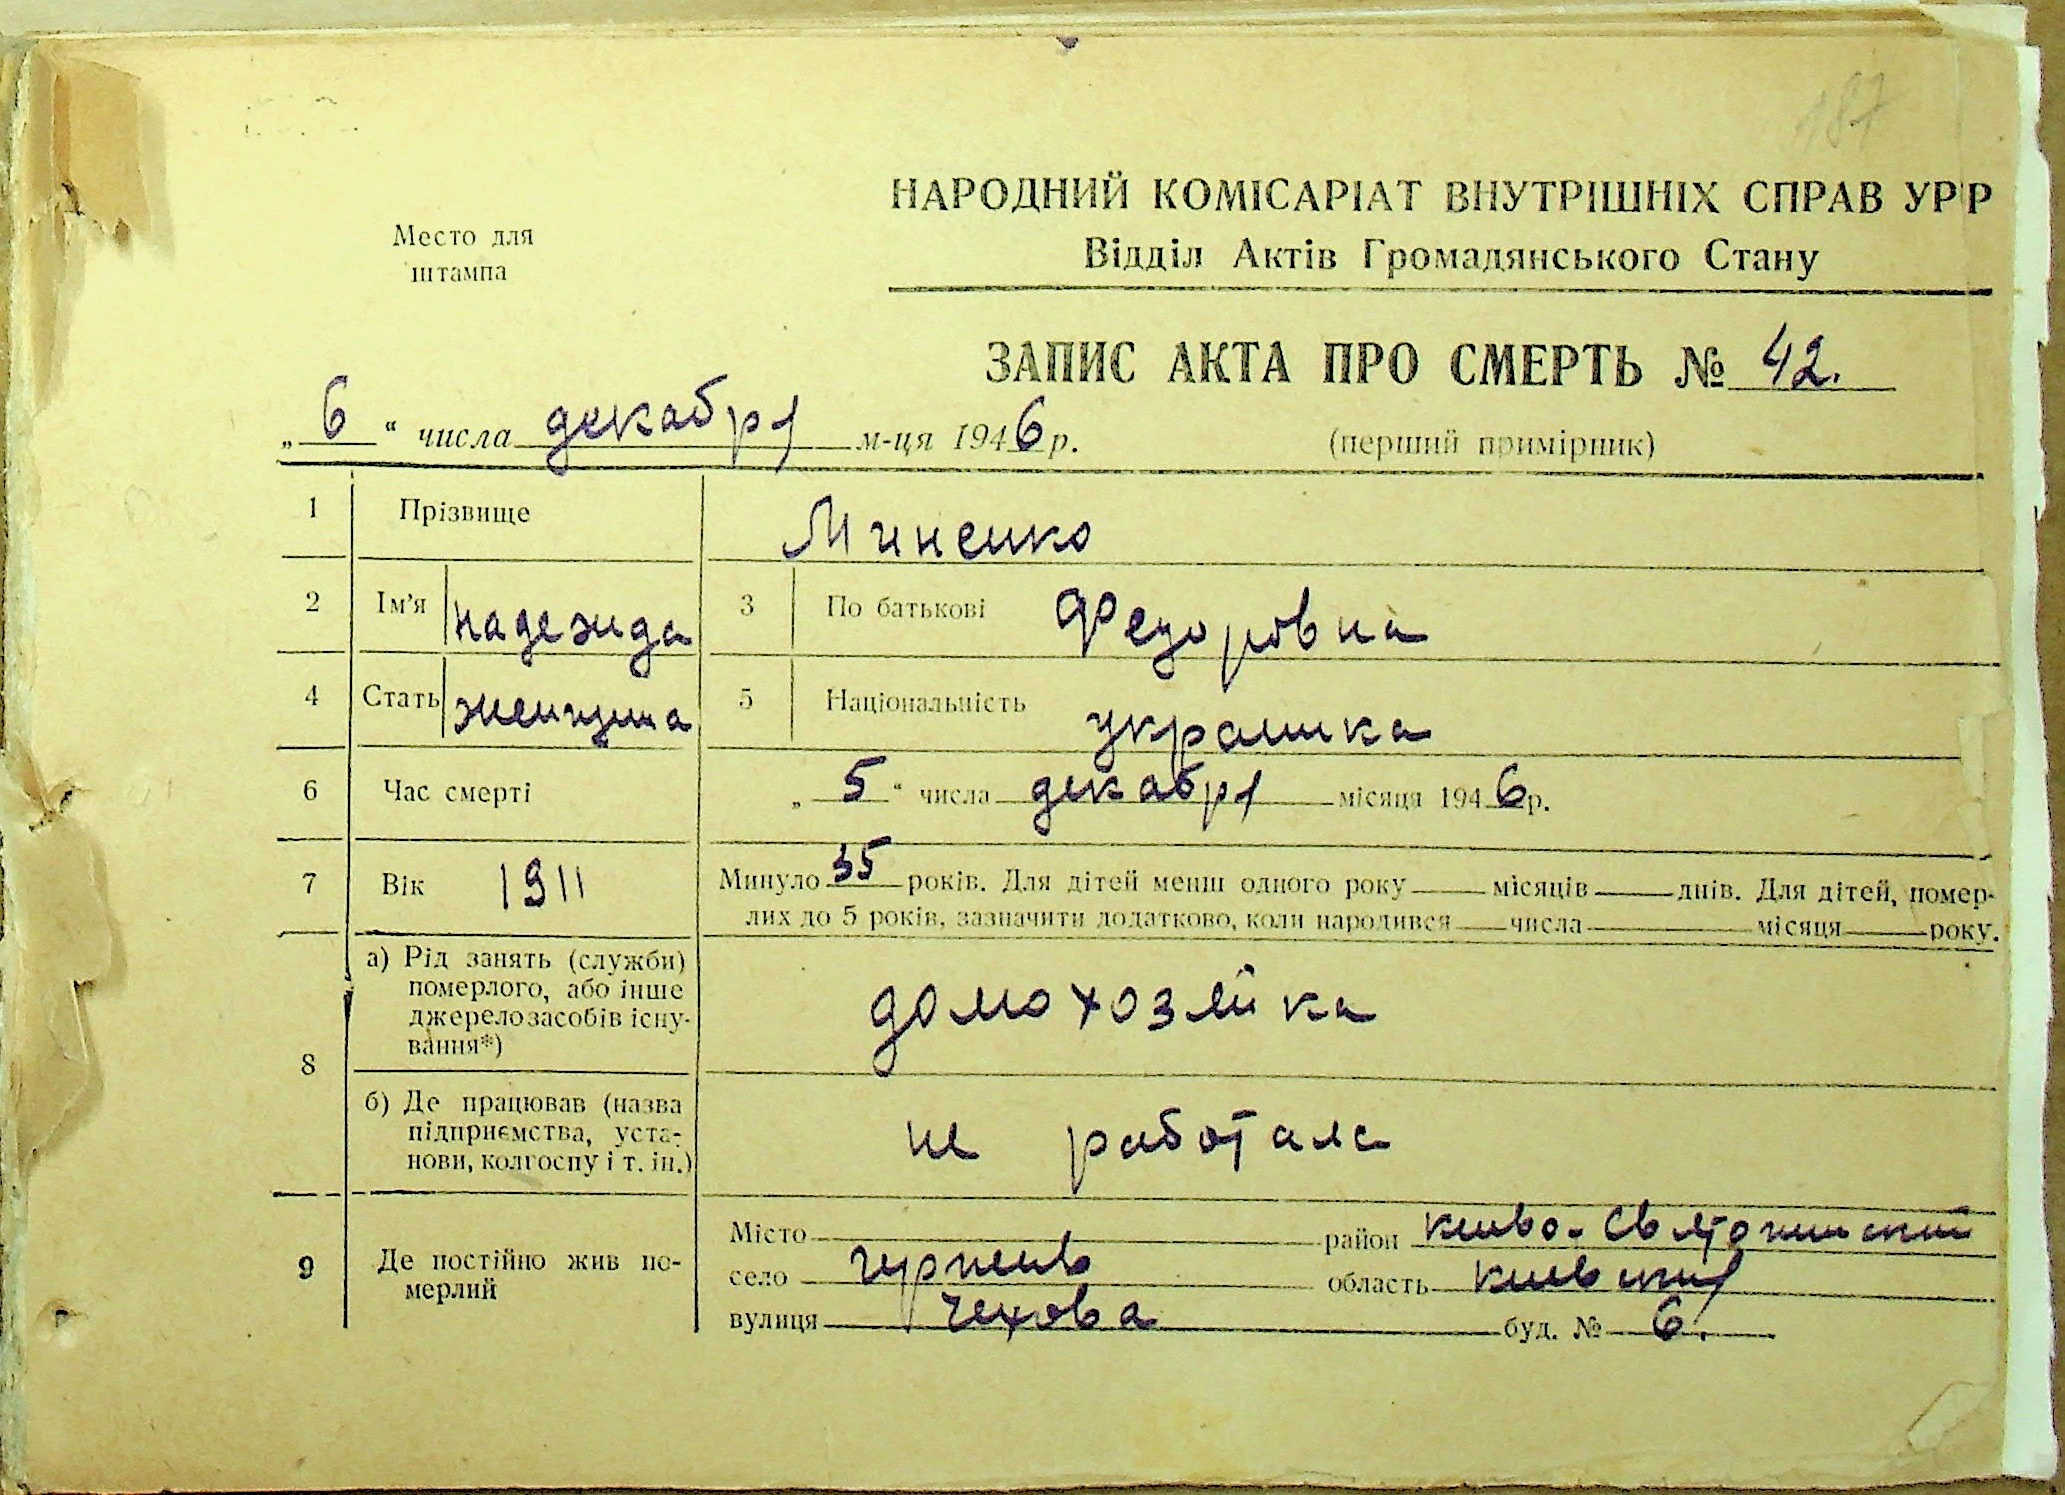 187
НАРОДНИЙ КОМІСАРІАТ ВНУТРІШНІХ СПРАВ УРСР
Відділ Актів Громадянського Стану
Место для
штампа
ЗАПИС АКТА ПРО СМЕРТЬ № 42.
„ 6 “ числа декабря м-ця 1946 р.
(перший примірник)
1 Прізвище Миненко
2 Ім'я надежда 3 По батькові Федоровна
4 Стать женщина 5 Національність украинка
6 Час смерті „ 5 “ числа декабря місяця 1946 р.
7 Вік 1911 Минуло 35 років. Для дітей менш одного року місяців днів. Для дітей, помер-
лих до 5 років, зазначити додатково, коли народився числа місяця року.
8 а) Рід занять (служби)
померлого, або інше
джерело засобів існу-
вання*)
домохозяйка
б) Де працював (назва
підприємства, уста-
нови, колгоспу і т. ін.)
не работала
9 Де постійно жив по-
мерлий
Місто район киево-Святошинский
село область киевская
вулиця Чехова буд. № 6.